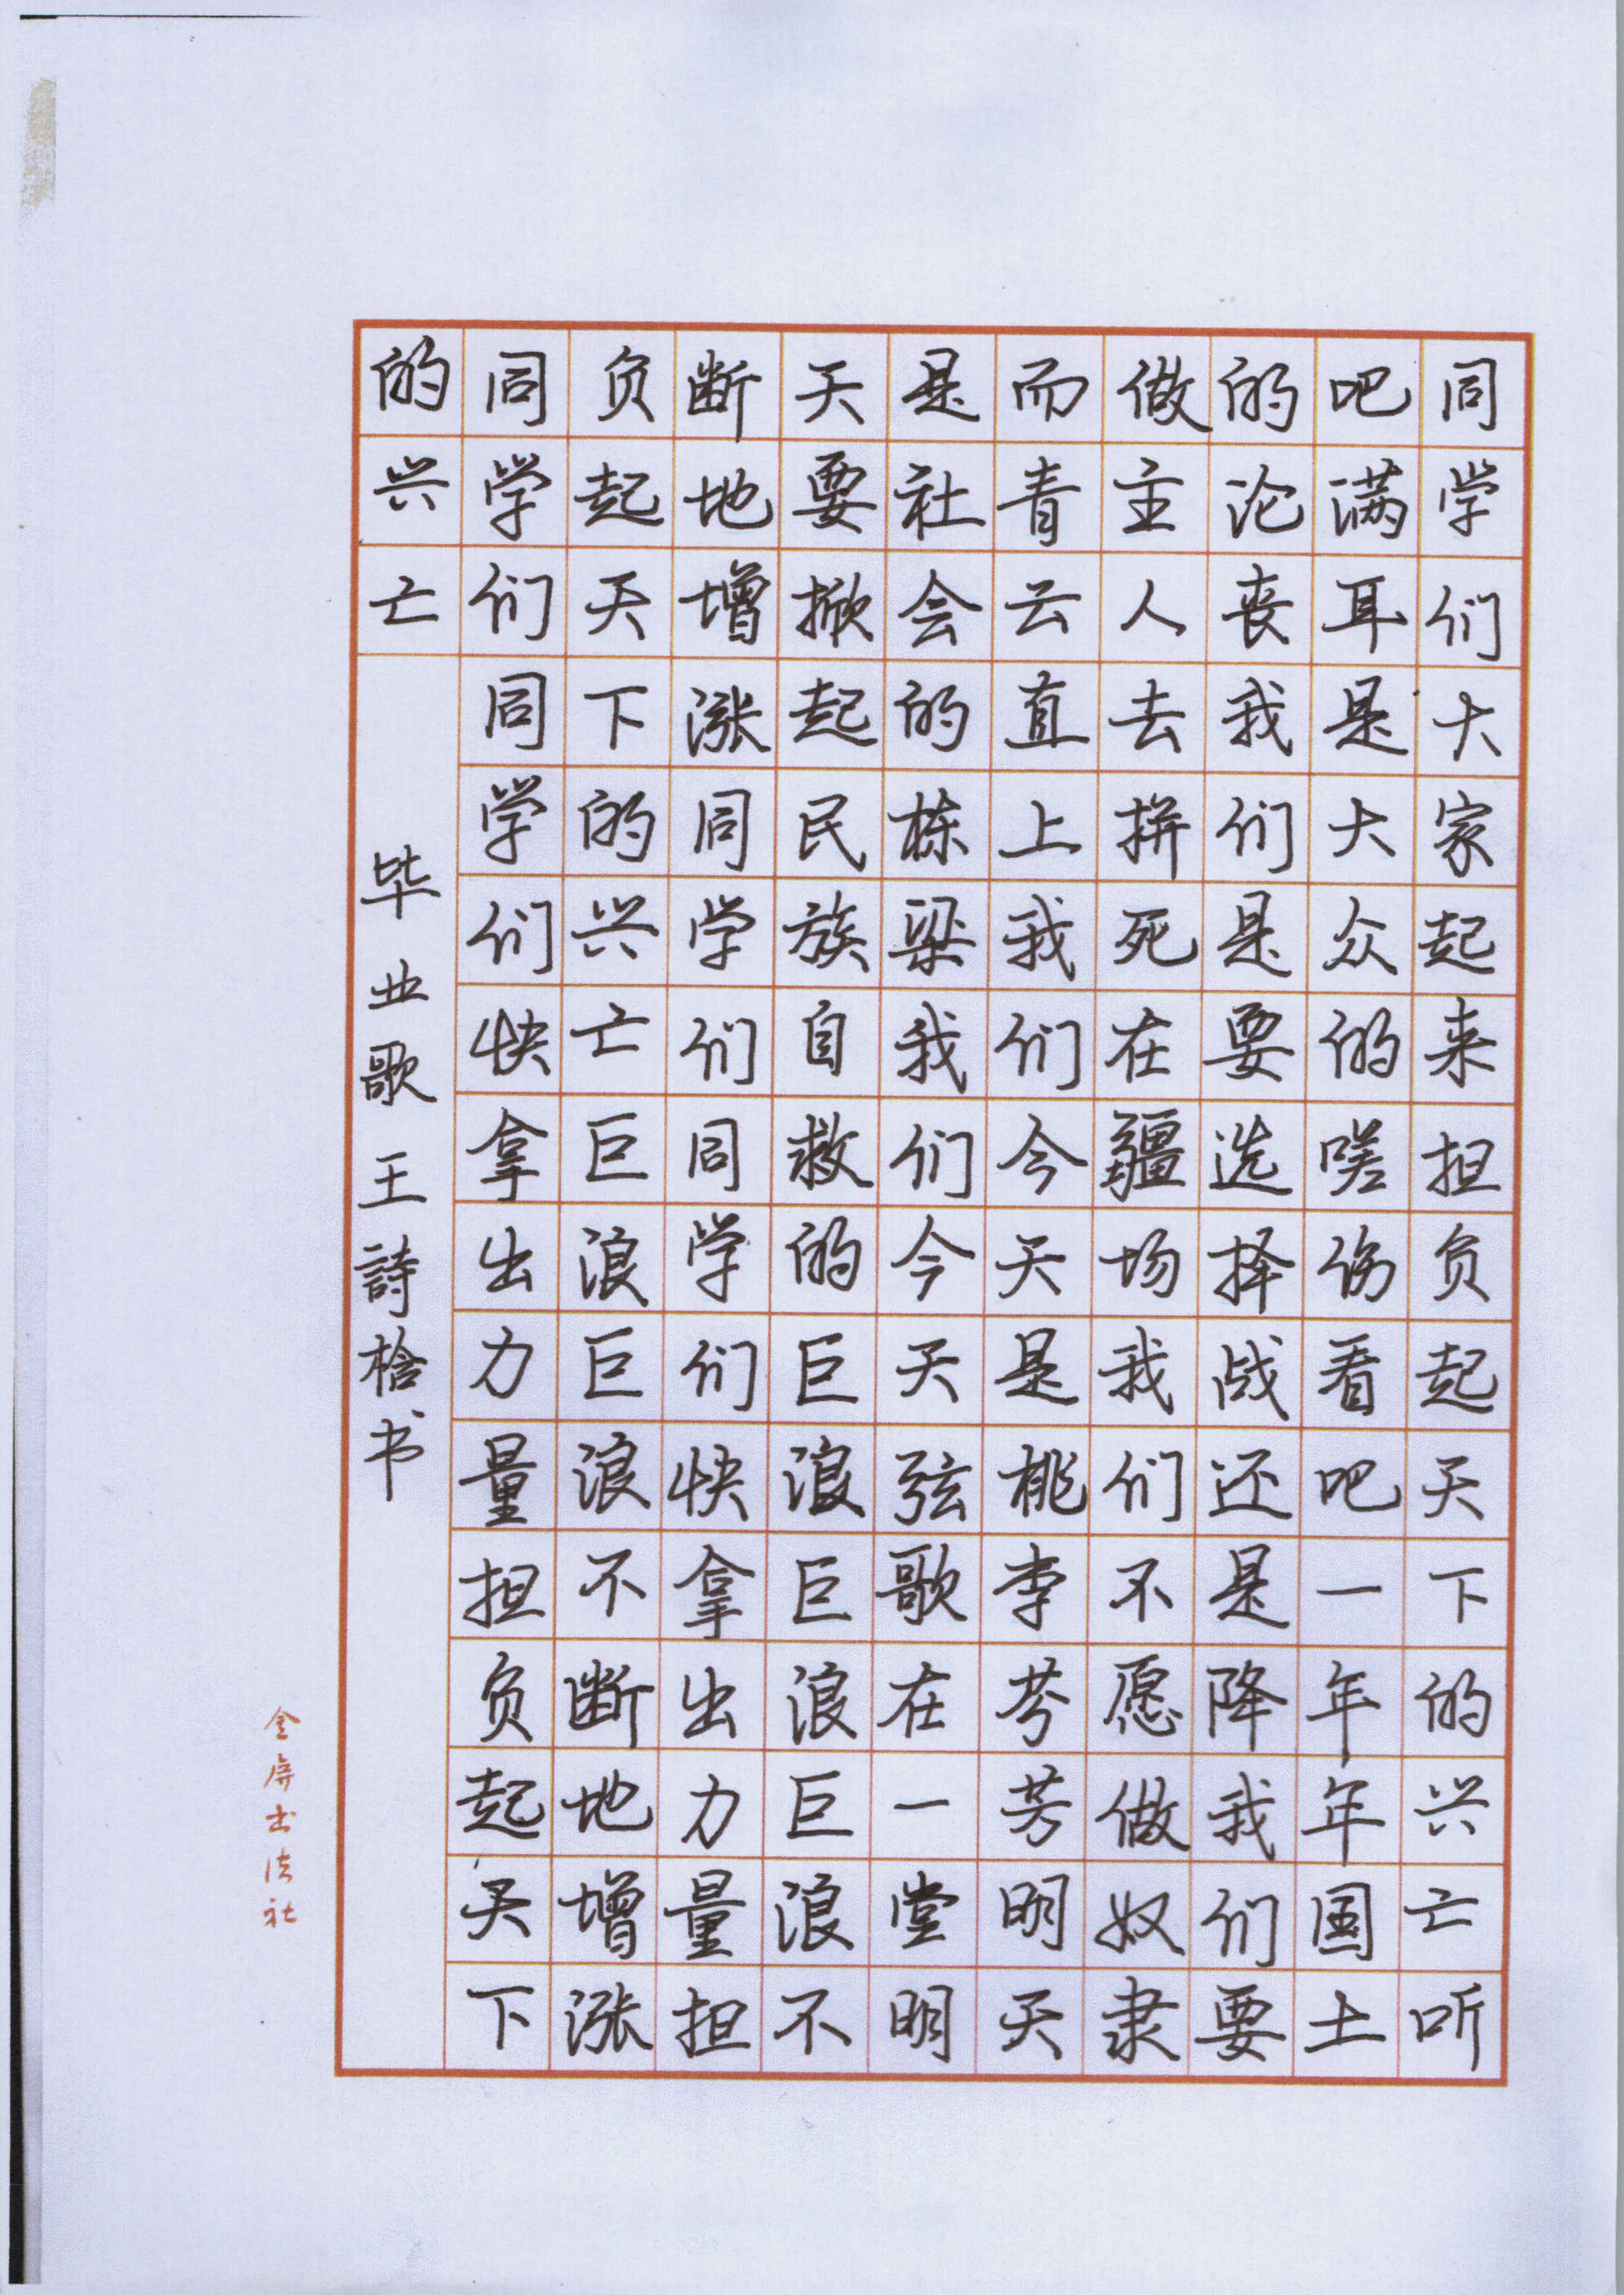 同学们大家起来担负起天下的兴亡听
吧满耳是大众的嗟伤看吧一年年国土
的沦丧我们是要选择战还是降我们要
做主人去拼死在疆场我们不愿做奴隶
而青云直上我们今天是桃李芬芳明天
是社会的栋梁我们今天弦歌在一堂明
天要掀起民族自救的巨浪巨浪巨浪不
断地增涨同学们同学们快拿出力量担
负起天下的兴亡巨浪巨浪不断地增涨
同学们同学们快拿出力量担负起天下
的兴亡
毕业歌 王詩书
金书法社